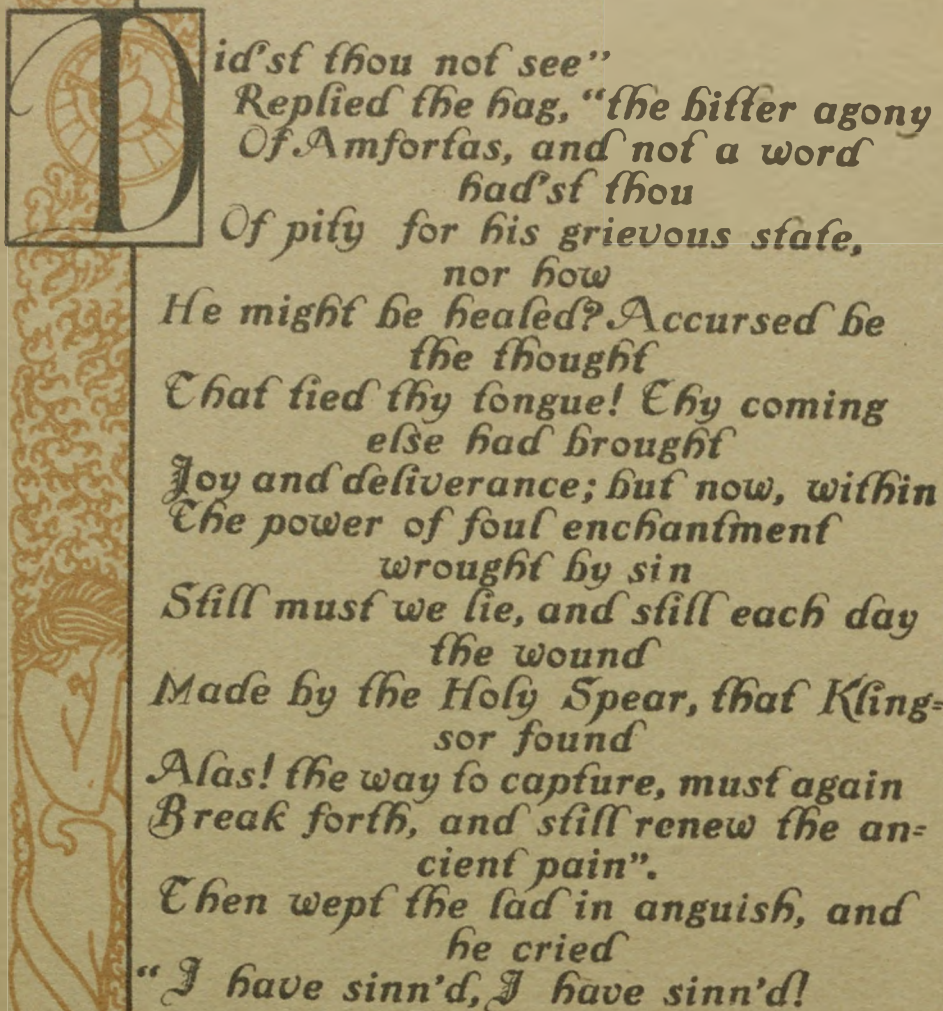 Did'st thou not see”
Replied the hag, “the bitter agony
Of Amfortas, and not a word
had'st thou
Of pity for his grievous state,
nor how
He might be healed? Accursed be
the thought
That tied thy tongue! Thy coming
else had brought
Joy and deliverance; but now, within
The power of foul enchantment
wrought by sin
Still must we lie, and still each day
the wound
Made by the Holy Spear, that Kling=
sor found
Alas! the way to capture, must again
Break forth, and still renew the an=
cient pain”.
Then wept the lad in anguish, and
he cried
“I have sinn'd, I have sinn'd!